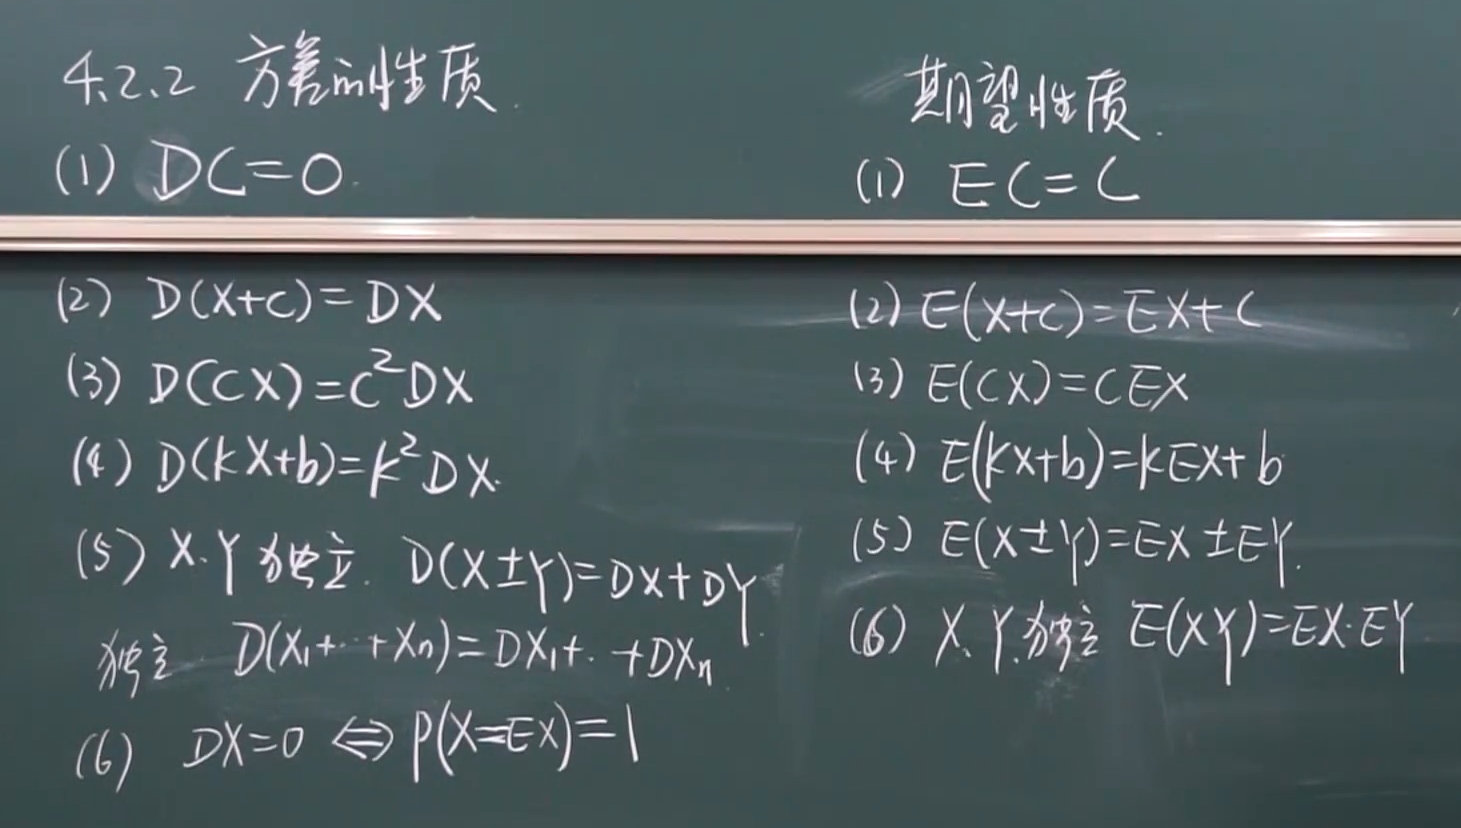 4.2.2 方差的性质.
(1) DC=0.
(2) D(X+C)=DX
(3) D(CX)=C²DX
(4) D(kX+b)=k²DX.
(5) X.Y独立. D(X±Y)=DX+DY.
独立. D(X₁+··+Xₙ)=DX₁+·+DXₙ
(6) DX=0 ⇔ P(X=EX)=1
期望性质.
(1) EC=C
(2) E(X+C)=EX+C
(3) E(CX)=CEX
(4) E(kX+b)=kEX+b
(5) E(X±Y)=EX±EY.
(6) X.Y.独立 E(XY)=EX·EY